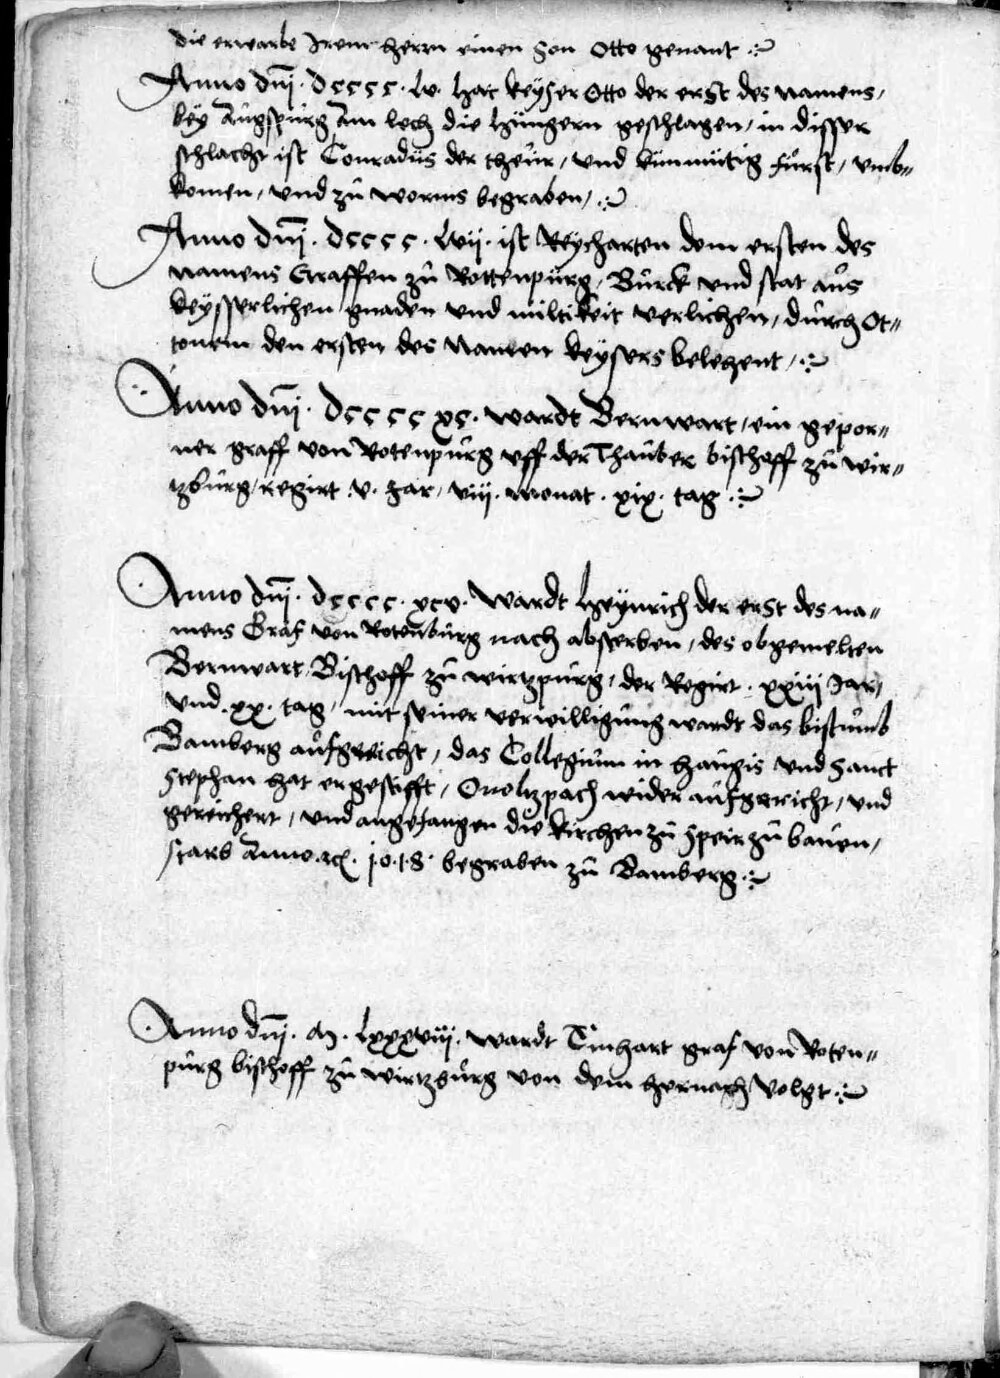 die erwarbe Irem herrn einen Son Otto genant
Anno dnj. dcccc. lv. hat keyser Otto der erst des namens,
bey Augspurg Am lech die hungern geschlagen, in disser
schlacht ist Conradus der theur, und künmütig fürst, umb=
komen, und zu worms begraben,
Anno dnj. dcccc. lvij. ist Reycharten dem ersten des
namens Graffen zu Rottenpurg, Burck und stat aus
keysserlichen gnaden und miltikeit verlichen, durch Ot=
tonem den ersten des Namen keysers belehent,
Anno dnj. dcccc xc. wardt Bernwart, ein gepor=
ner graff von Rotenpurg uff der Thauber bischoff zu wir=
tzburg, regirt .v. Jar, viii. monat. xix. tag.
Anno dnj. dcccc. xcv. wardt Heynrich der erst des na=
mens Graf von Rotenburg nach absterben, des obgemelten
Bernwart, Bischoff zu wirtzpurg, der Regirt. xxiiij Jar,
und. xx. tag, mit seiner verwilligung wardt das bistumb
Bamberg aufgericht, das Collegium in haugis und Sanct
Stephan hat er gestifft, Onoltzpach wider aufgericht, und
gereichert, und angefangen die kirchen zu Speir zu bauen,
starb Anno. 1018. begraben zu Bamberg.
Anno dnj. M. lxxxviij. wardt Einhart graf von Roten=
purg bischoff zu wirtzburg von dem hernach volgt.